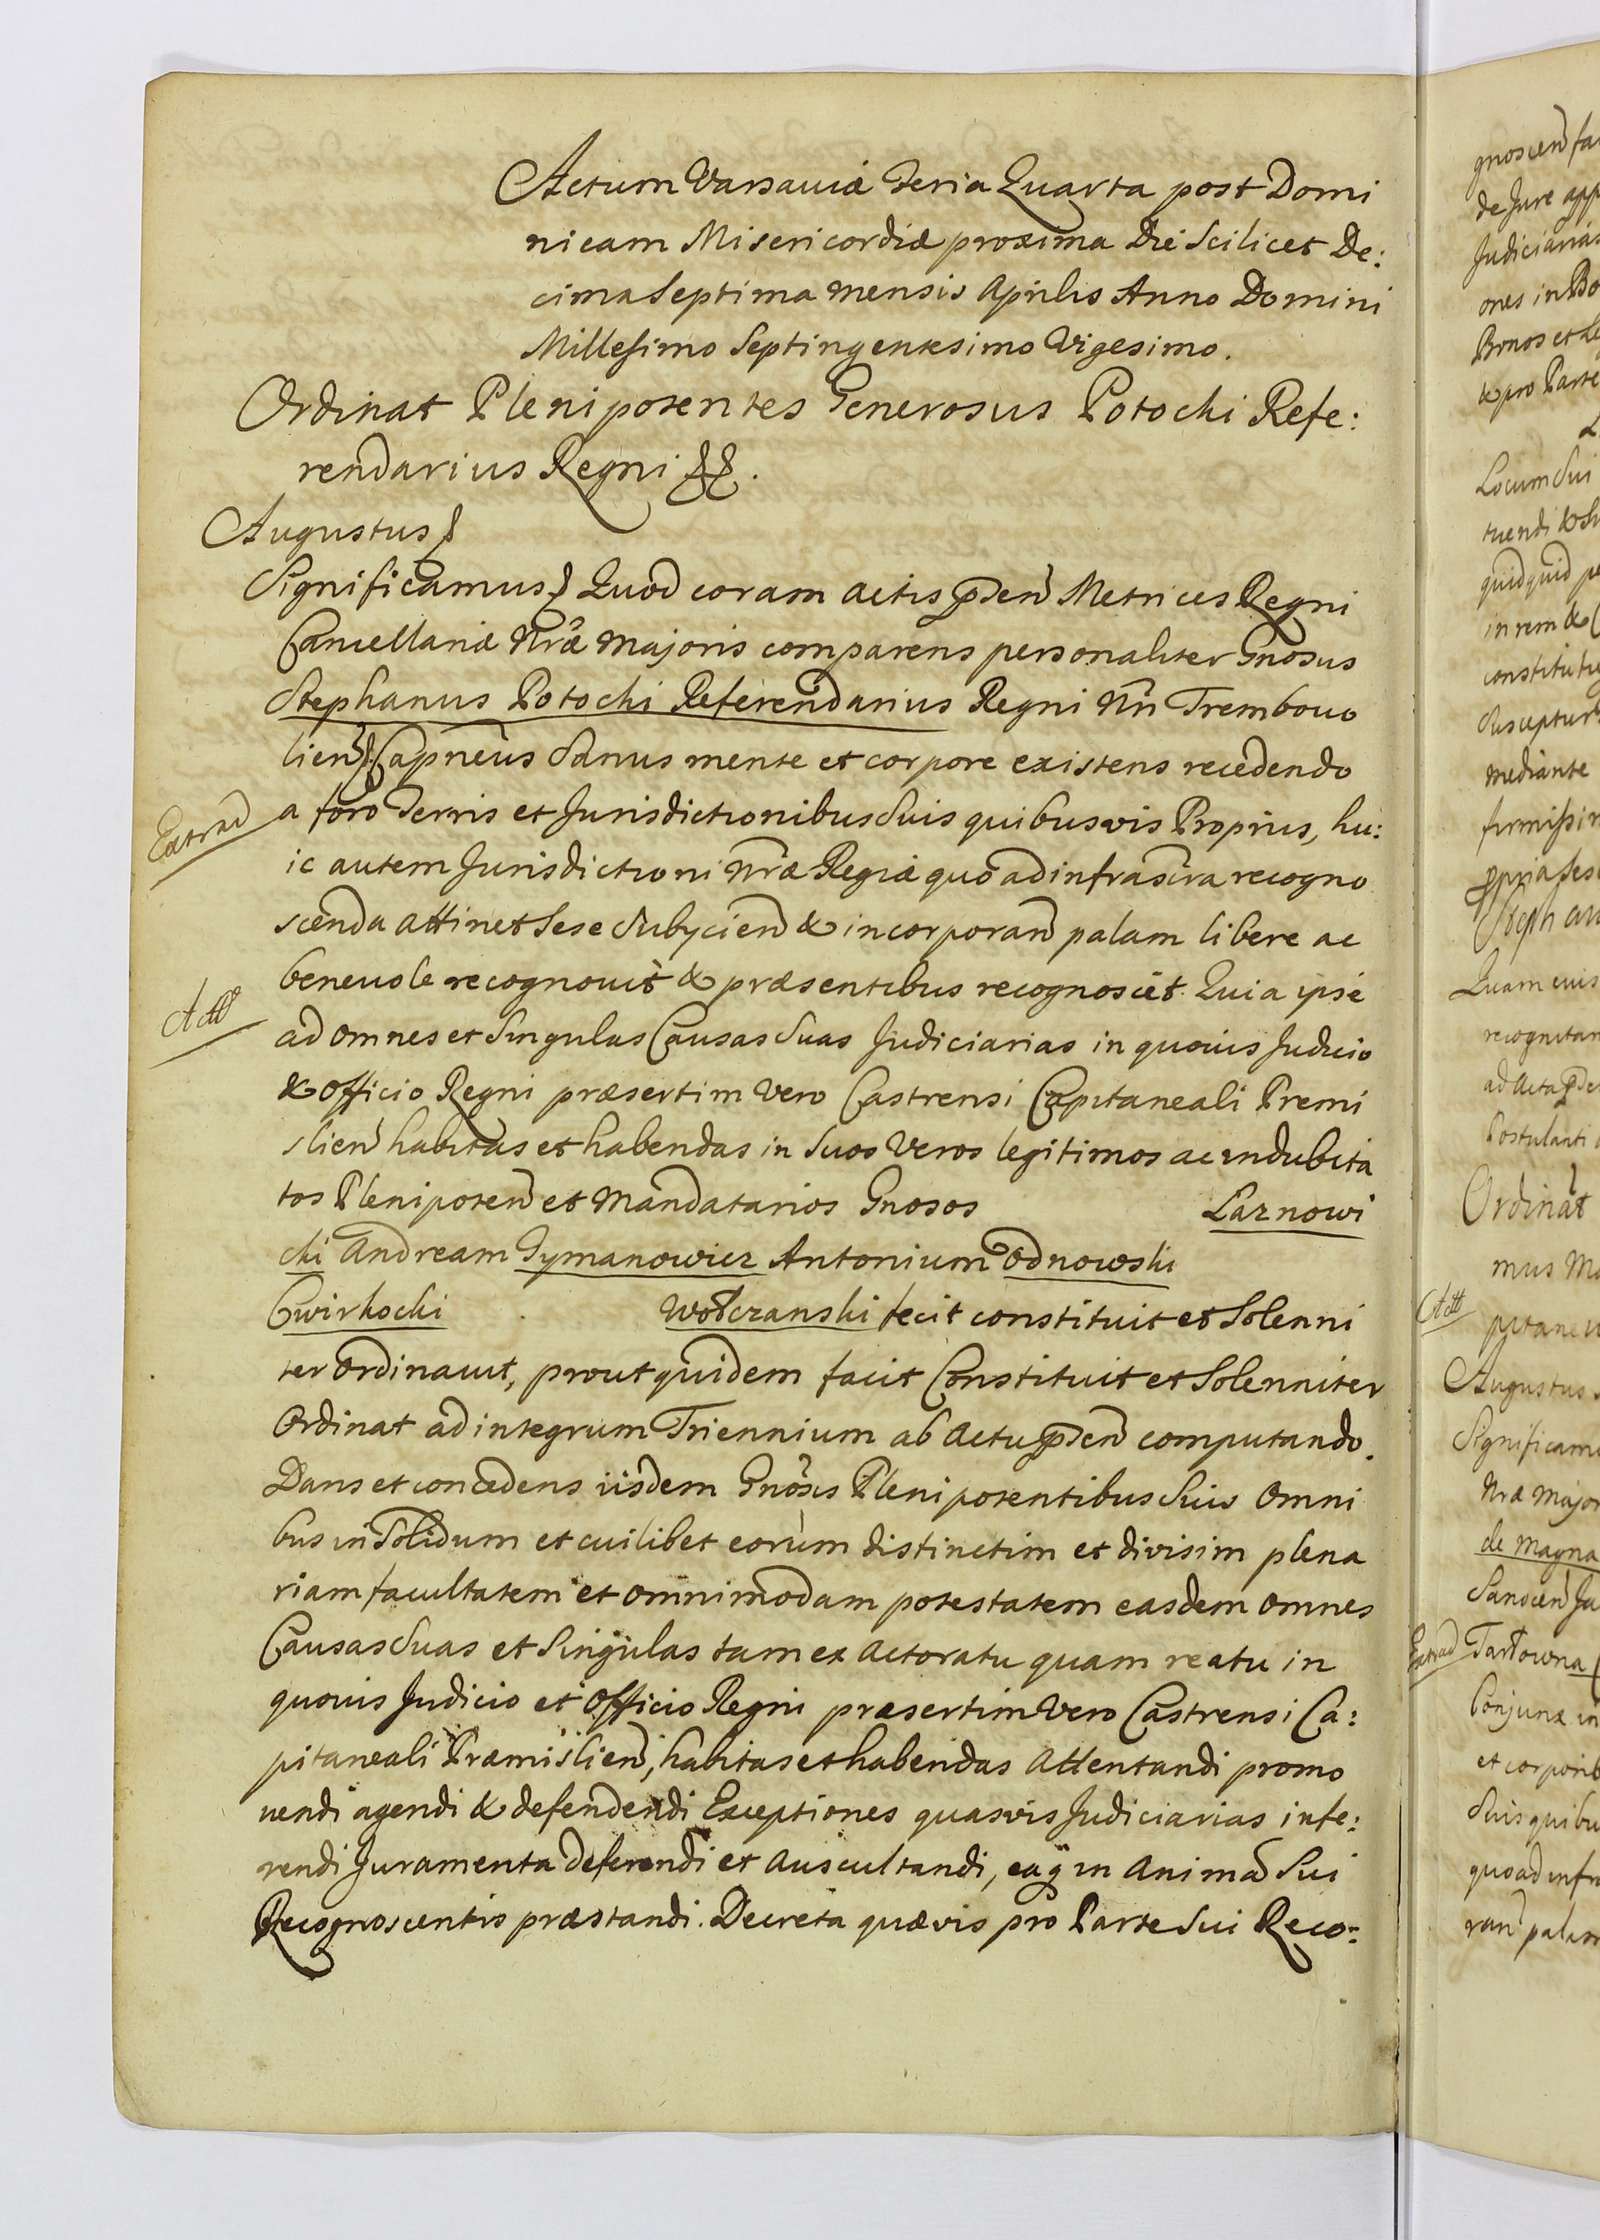 Actum Varsaviæ Feria Quarta post Domi
nicam Misericordiæ proxima Die Scilicet De:
cima Septima mensis Aprilis Anno Domini
Millesimo Septingentesimo Vigesimo.
Ordinat Plenipotentes Generosus Potocki Refe:
rendarius Regni
Augustus
Significamus Quod coram actis pñden Metrices Regni
Cancellariæ Nræ Majoris comparens personaliter Gnosus
Stephanus Potocki Referendarius Regni Nñ Trembovo
lien Capneus Sanus mente et corpore existens recedendo
Extrad
a foro Terris et Jurisdictionibus Suis quibusvis Proprius, hu:
ic autem Jurisdictioni Nræ Regiæ quo ad infrascra recogno
scenda attinet Sese Subjicien & incorporan palam libere ac
benevole recognovit & præsentibus recognoscit. Quia ipse
Act
ad omnes et Singulas Causas Suas Judiciarias in quovis Judicio
& Officio Regni præsertim Vero Castrensi Capitaneali Premi
slien habitas et habendas in Suos Veros legitimos ac indubita
tos Plenipoten et Mandatarios Gnosos Laznowi
cki Andream Symanowicz Antonium Odnowski
Cwirkocki Wolczanski fecit constituit et Solenni
ter Ordinavit, prout quidem facit Constituit et Solenniter
Ordinat ad integrum Triennium ab Actu pñden computando.
Dans et concedens iisdem Gnosis Plenipotentibus Suis Omni
bus in Solidum et cuilibet eorum distinctim et divisim plena
riam facultatem et omnimodam potestatem easdem omnes
Causas Suas et Singulas tam ex Actoratu quam reatu in
quovis Judicio et Officio Regni præsertim Vero Castrensi Ca:
pitaneali Præmislien, habitas et habendas Attentandi promo
vendi agendi & defendendi Exceptiones quasvis Judiciarias infe:
rendi Juramenta deferendi et Auscultandi, eaq in Animã Sui
Recognoscentis præstandi. Decreta quævis pro Parte Sui Reco:
de Jure app
Judiciarias
ones in Bo
& pro Parte
Locum Sui
tuendi & Su
quidquid pe
in rem & C
constitu
mediante
Quam eius
recognitam
Postulanti
Ordinat
mus Ma
Act
Augustus
Significamu
Nræ Major
de Magna
Extrad
Tarłowna
et corporib
Suis quibu
quo ad infra
ran palam